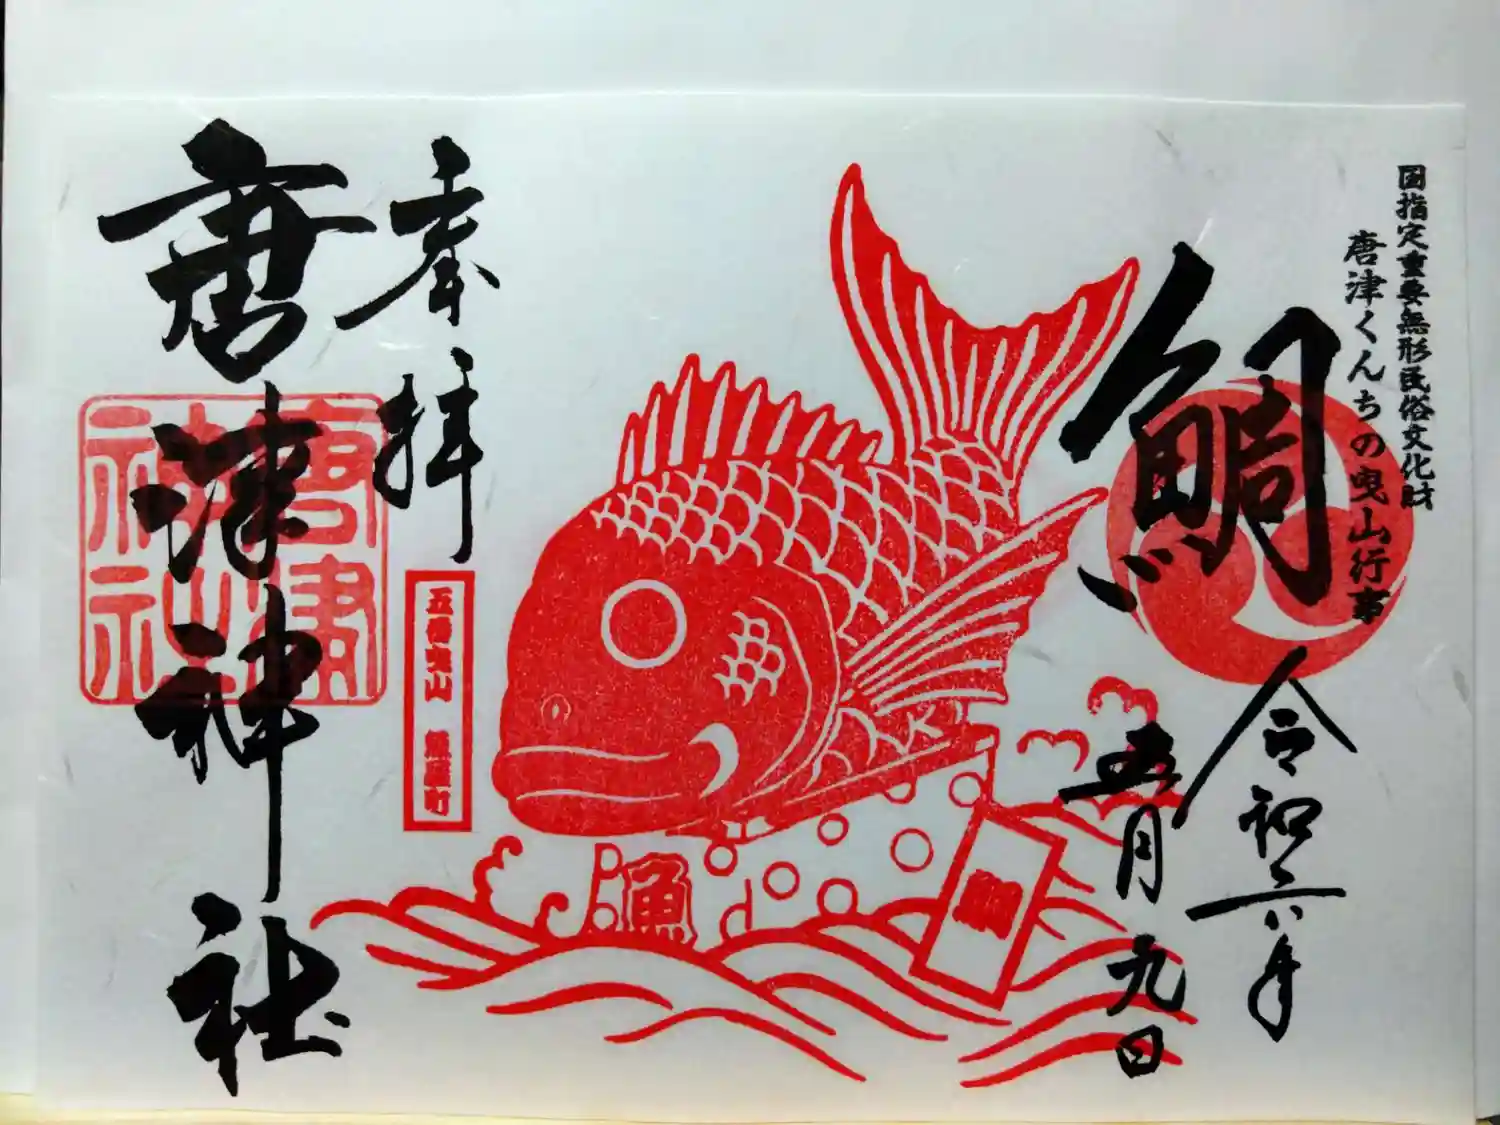 国指定重要無形民俗文化財
唐津くんちの曳山行事
鯛
令和六年
五月九日
漁
奉拝
五番曳山 魚屋町
唐津神社
唐津
神社